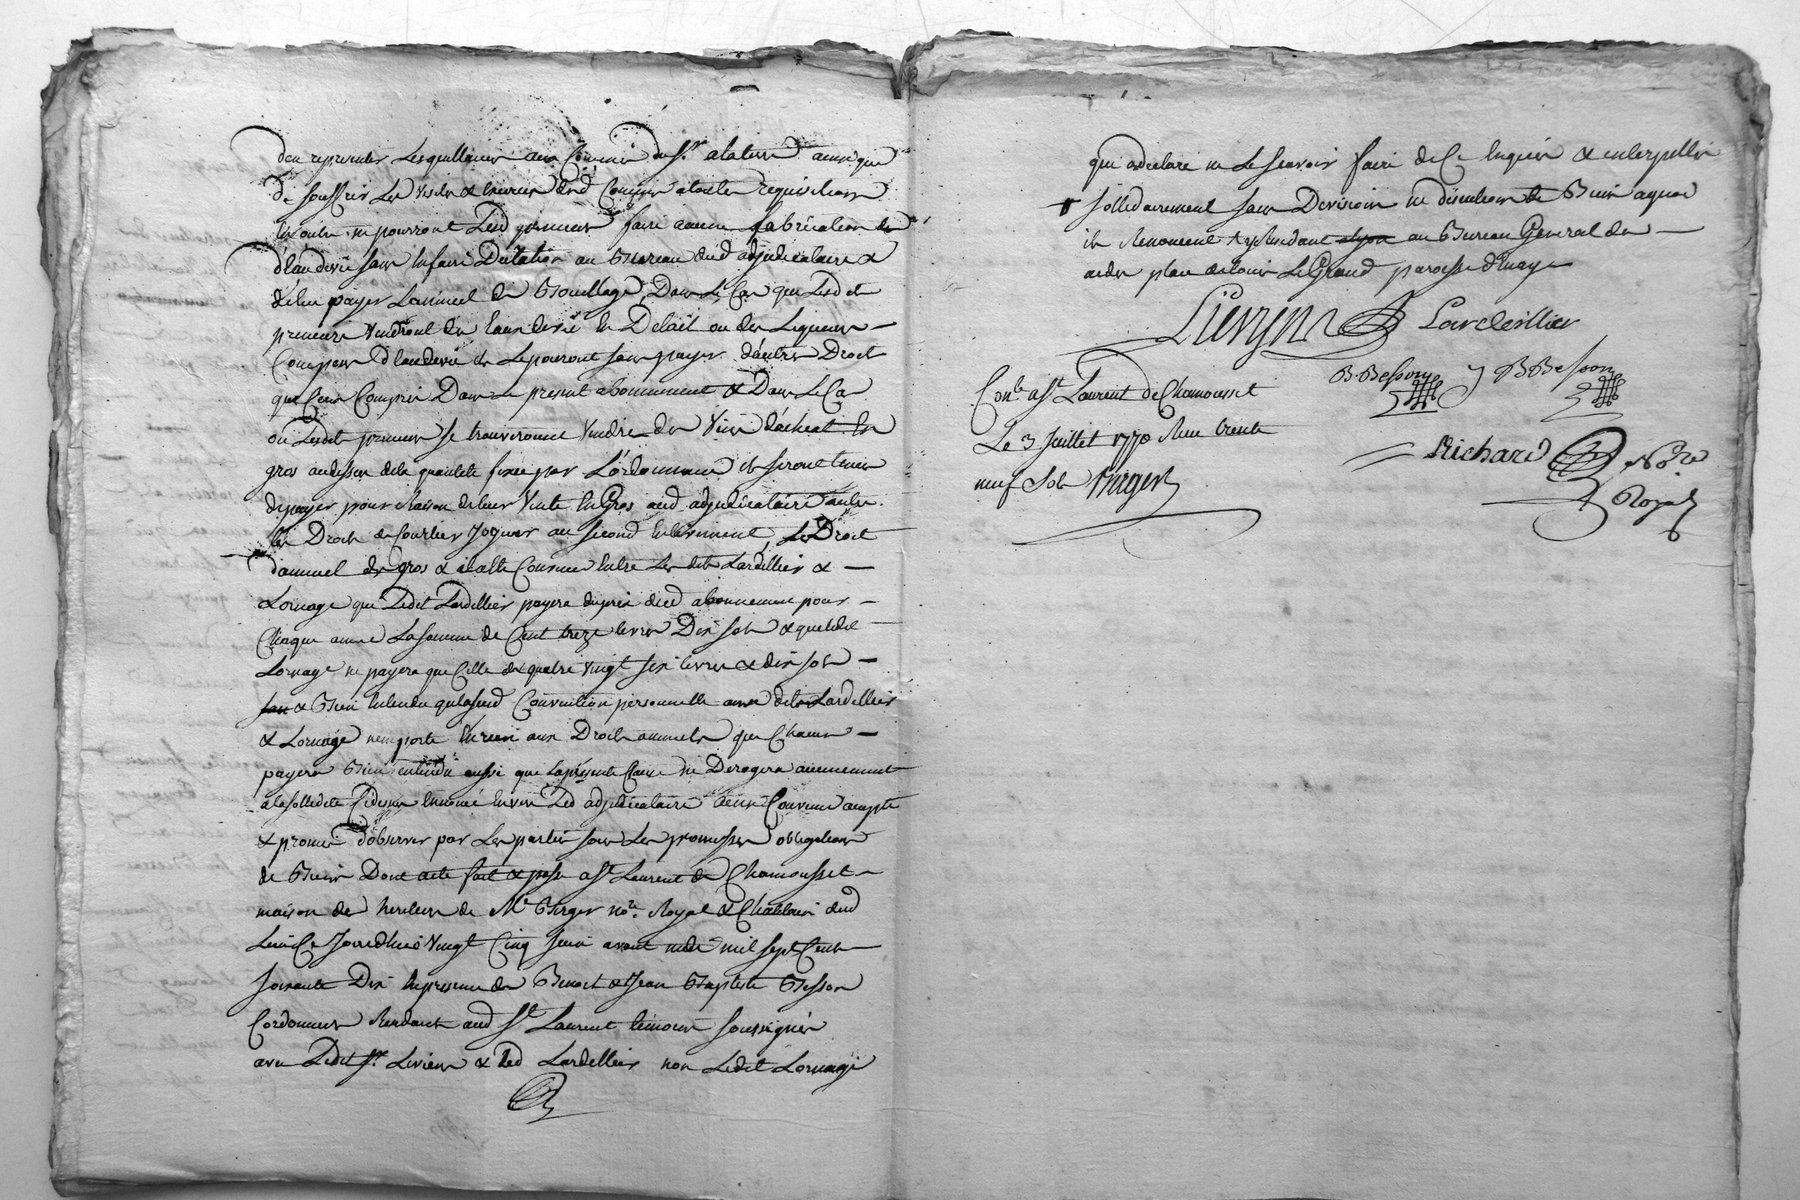 d'en representer Les quittances aux Commis dud. Sr. a la ainsi que
De souffrir Les Visites & Exercices desd. Commis a toutes requisitions
En outre ne pourront Lesd preneurs faire aucune fabrication
d'Eau de vie sans En faire Declaration au Bureau dud adjudicataire &
de leur payer Lannuel de Brouillage, Dans Le Cas que Lesdits
preneurs Vendront des Eaux de vie En Detail ou des Liqueurs
Composées d'Eau de vie ils Le pouront sans payer d'autres Droits
que Ceux Compris Dans Le present abonnement & Dans Le Cas
ou Lesdits preneurs Se trouveroient Vendre des Vins d'achat En
gros au dessus de la quantité fixée par L'ordonnance ils seront tenus
de payer pour Raison de leur Vente En Gros aud adjudicataire
Les Droits de Courtiers Jogeurs au second Enlevement, Le Droit
d'annuel de gros & a Eté Convenu Entre Les dits Lardellier &
Lornage que Ledit Lardellier payera du prix dud abonnement pour
Chaque année La somme de Cent treze livres Dix sols & que ledit
Lornage ne payera que Celle de quatre Vingt six livres & dix sols
& Bien Entendu que Convention personnelle audits Lardellier
& Lornage n'emporte En rien aux Droits annuels que Chacun
payera Bien entendu aussi que La presente Clause ne Derogera aucunement
a la sollidité Cy dessus Enoncé Envers Led adjudicataire ainsi Convenu accepté
& promis d'observer par Les parties sous Les promesses obligations
de Biens Dont acte fait & passé a St Laurent de Chamousset
maison des heritiers de Me Berger nore. Royal & Chatelain dud
Lieu Ce Jourdhuis Vingt Cinq Juin avant midi mil sept Cents
soixante Dix En presence de Benoit & Jean Baptiste Besson
Cordonniers Residants aud St Laurent temoins soussignés
avec Ledit Sr. Livieux & Led Lardellier non Ledit Lornage
qui a declaré ne Le scavoir faire de Ce Enquis & interpellé
sollidairement sans Division ne discution de Biens a quoi
ils Renoncent Residant au Bureau General des
aides place de Louis Le Grand paroisse d'Enay
Lardeillier
B Besson J B Besson
Conlé a St Laurent de Chamousset
Le 3 Juillet 1770 Reçu trente
neuf sols Burger
Richard Nore
Royal